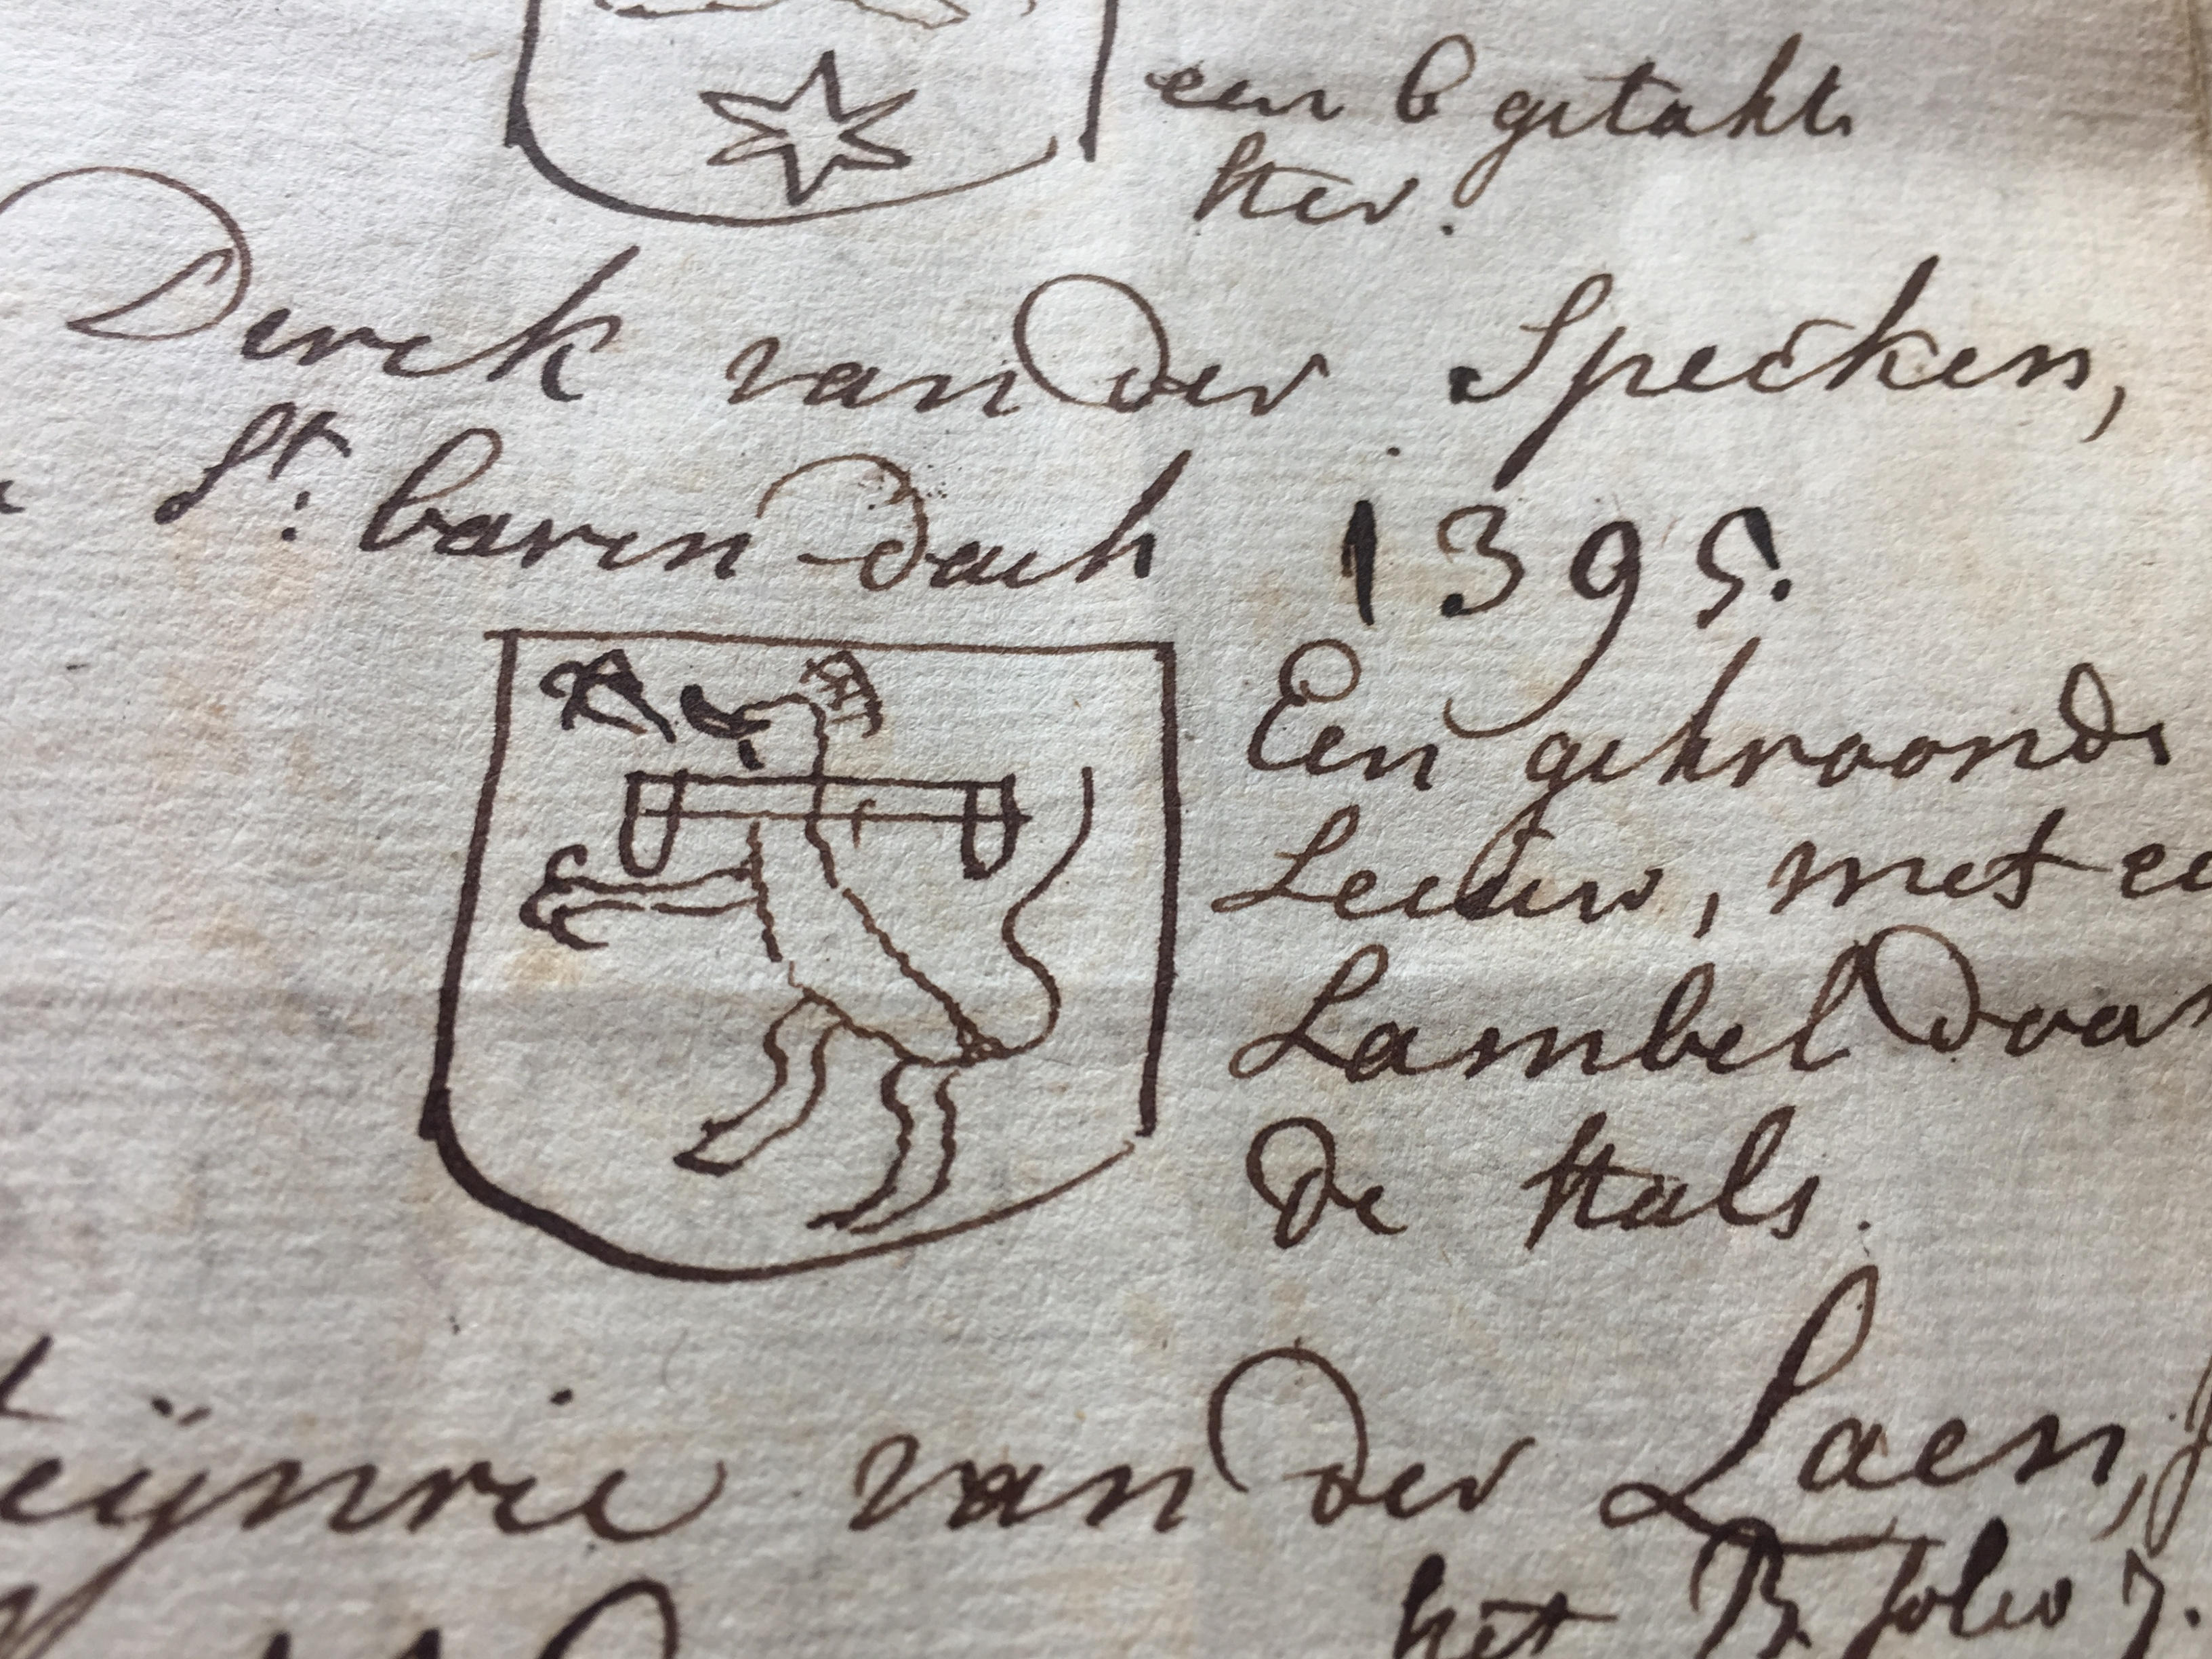 een 6 getakte
ster.
Derck van der Specken,
St: barendach 1395.
Een gekroonde
Leeuw, met ee
Lambel door
de Hals.
eijnric van der Laen,
het B. folio 7.